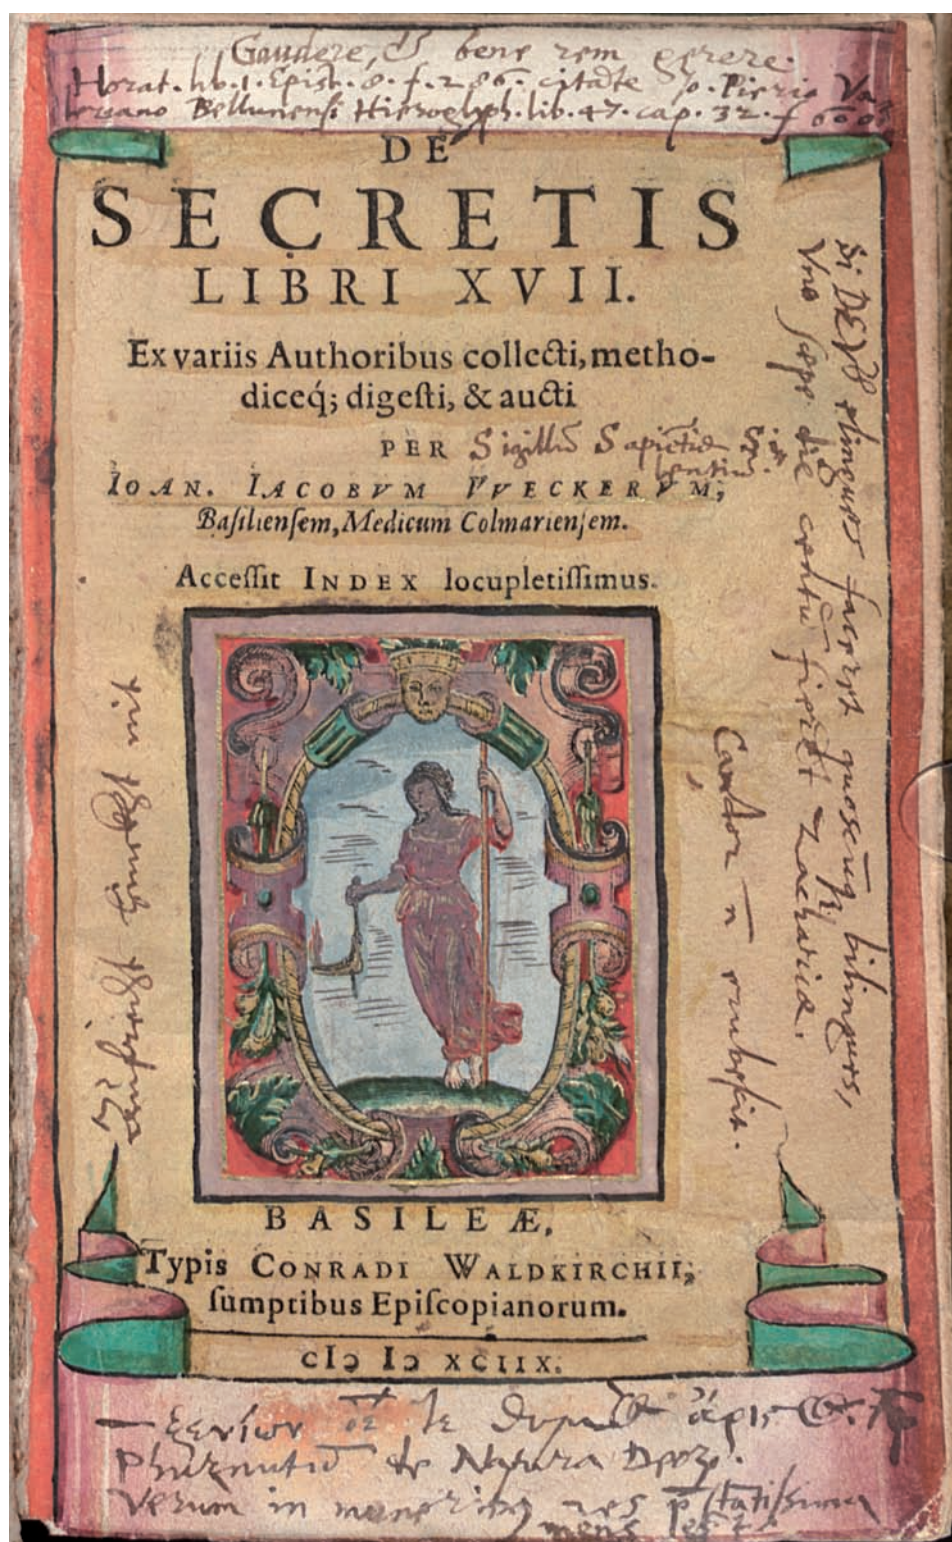 Gaudere, & bene rem gerere.
Horat. lib. 1. Epist. 8. f. 286. citāte Jo. Pierio Va-
leriano Bellunensi Hieroglyph. lib. 47. cap. 32. f
DE
SECRETIS
LIBRI XVII.
Ex variis Authoribus collecti, metho-
diceq́; digesti, & aucti
PER Sigillū Sapiētiæ
IOAN. IACOBVM VVECKERVM,
Basiliensem, Medicum Colmariensem.
Accessit INDEX locupletissimus.
Si DEVS elingues faceret quoscūq; bilingues,
Vno sæpe die fieret Zacharias.
Candor n̄ erubescit.
BASILEÆ,
Typis CONRADI WALDKIRCHII,
sumptibus Episcopianorum.
cIↄ Iↄ XCIIX.
Phurnutū de Natura Deor.
Verum in muneribus res p̄stātissima
mens est.